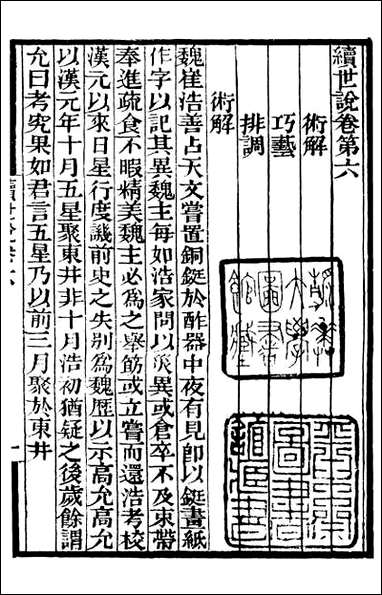 續世說卷第六
術解
巧藝
排調
術解
魏崔浩善占天文嘗置銅鋌於酢器中夜有見卽以鋌畫紙
作字以記其異魏主每如浩家問以災異或倉卒不及束帶
奉進疏食不暇精美魏主必為之舉筯或立嘗而還浩考校
漢元以來日星行度譏前史之失別為魏歷以示高允高允
以漢元年十月五星聚東井非十月浩初猶疑之後歲餘謂
允曰考究果如君言五星乃以前三月聚於東井
續世說卷六
一
大學
圖書
館藏